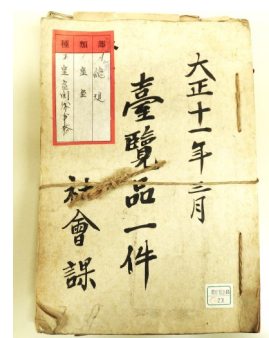 大正十一年三月
臺覽品一件
社會課
部
類
種